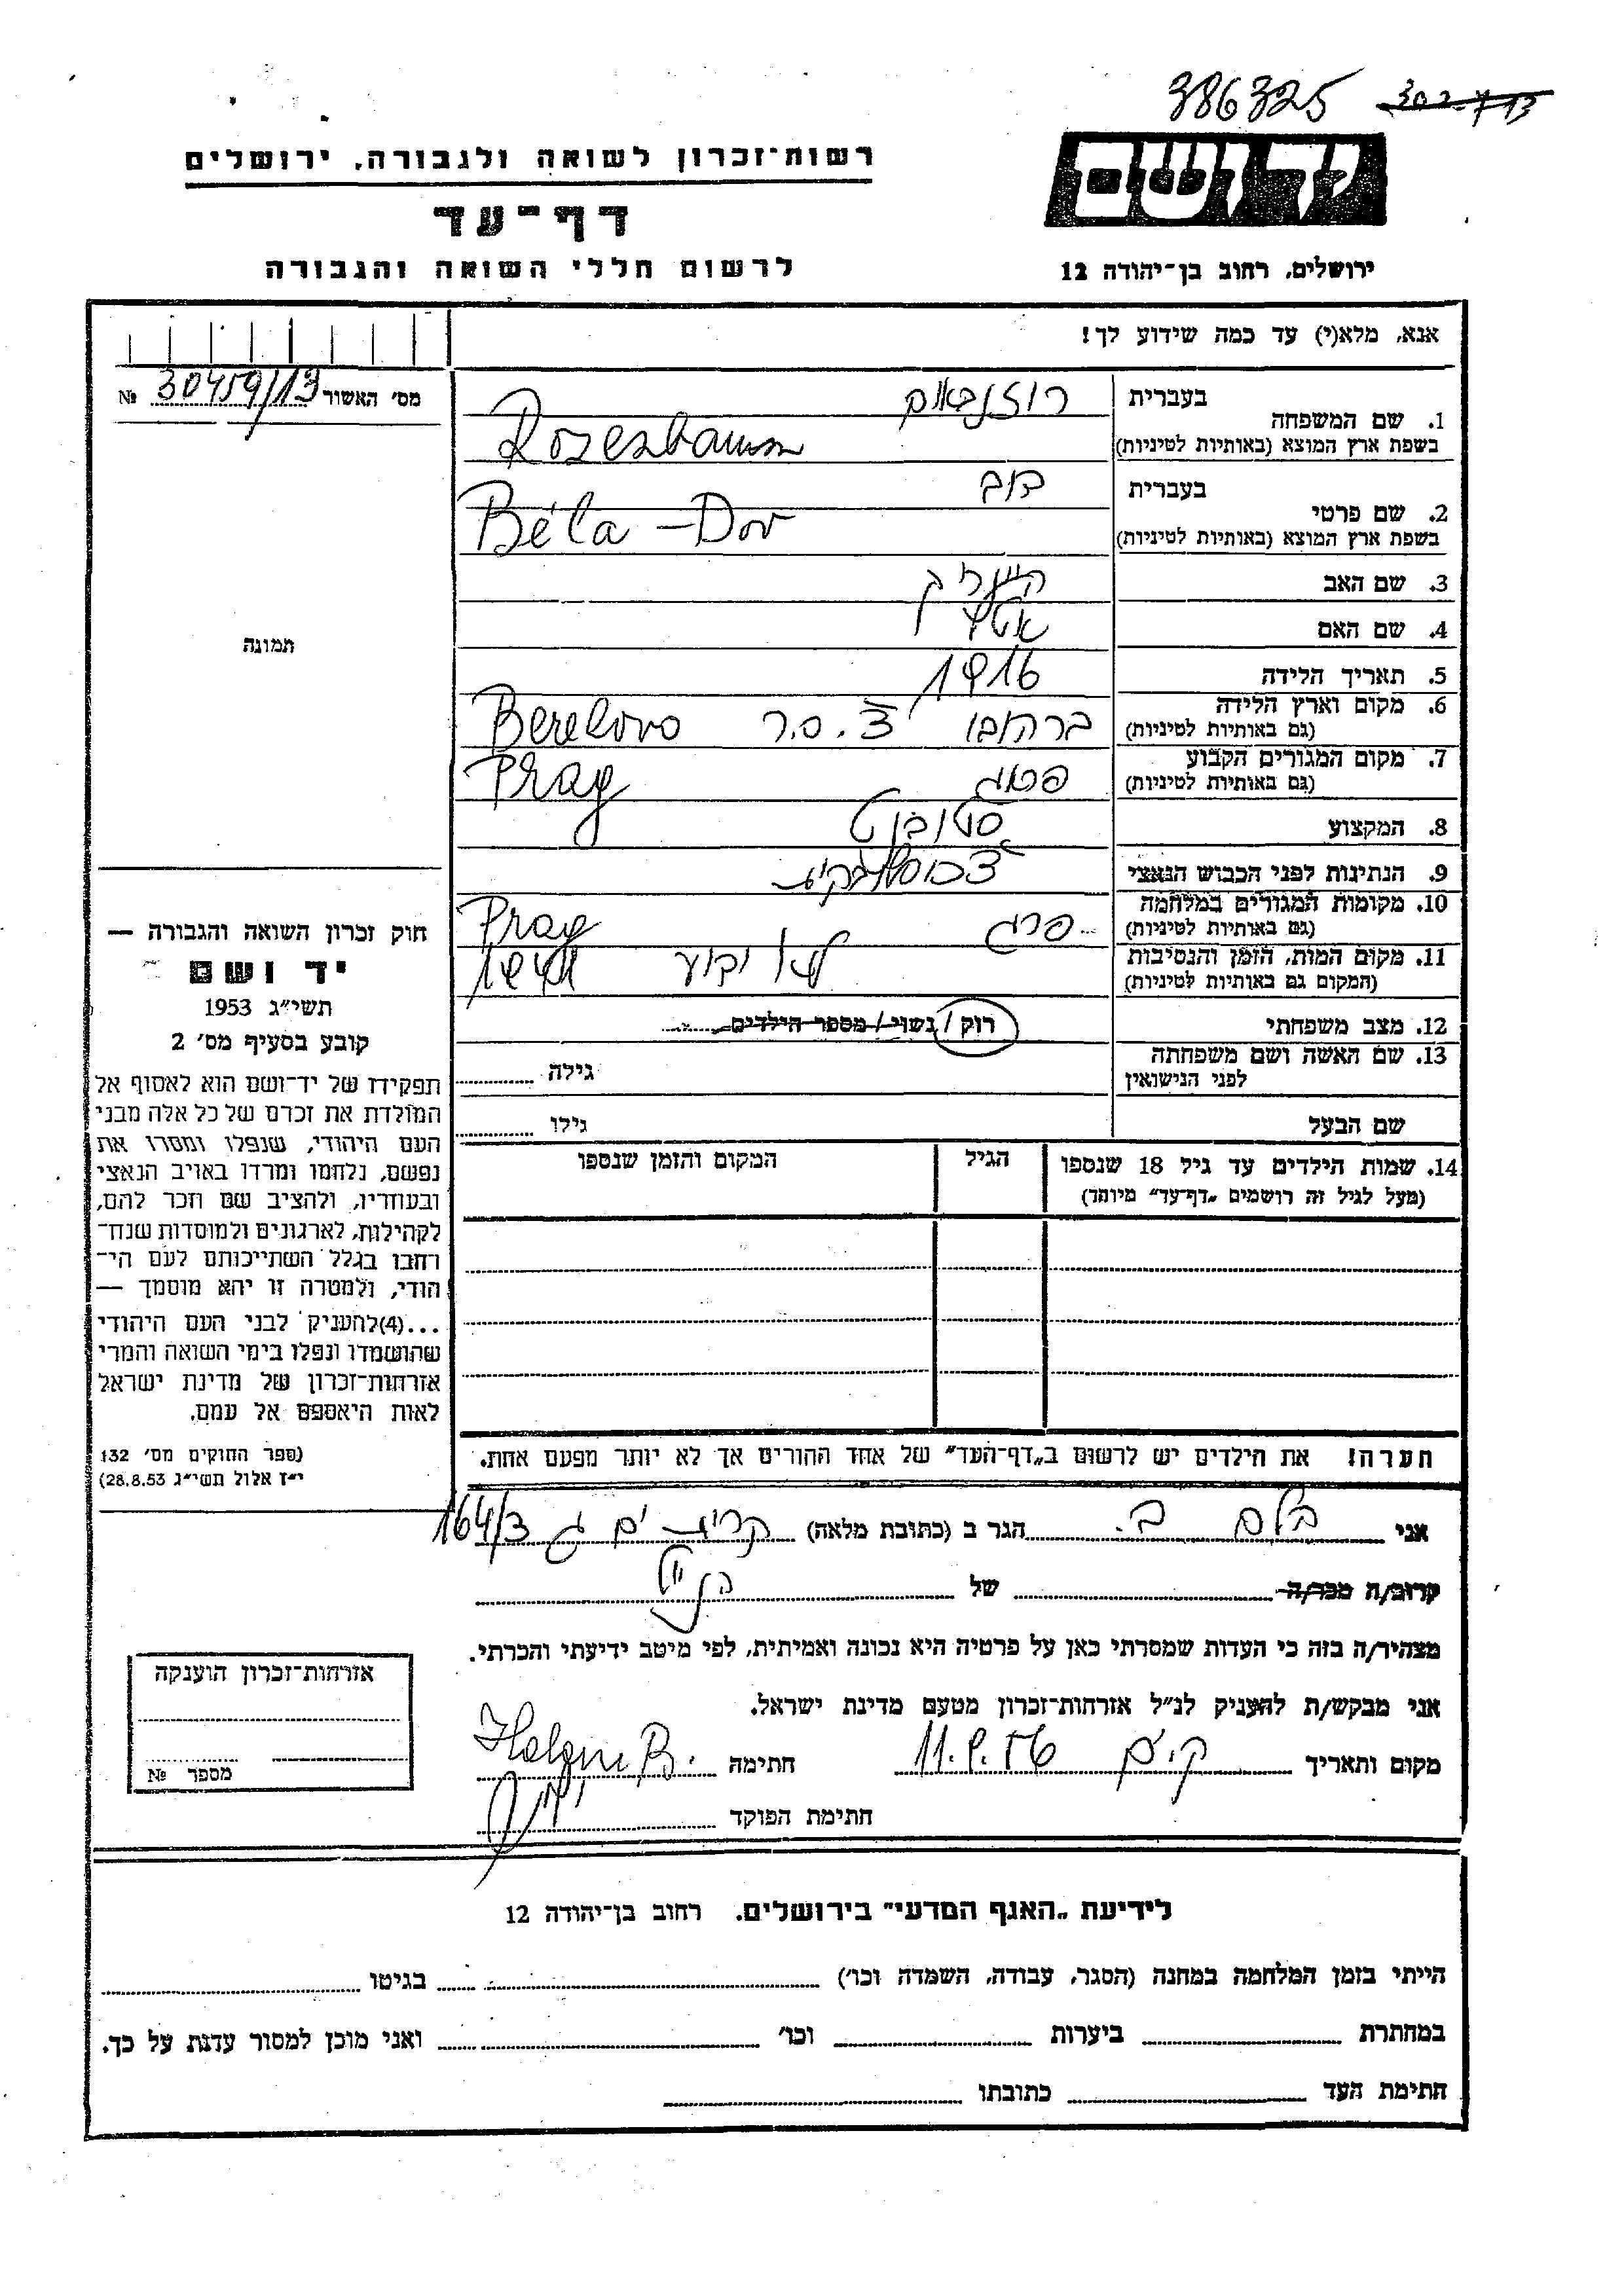 386325 302713
יד ושם
רשות־זכרון לשואה ולגבורה, ירושלים
דף־עד
לרשום חללי השואה והגבורה
ירושלים, רחוב בן־יהודה 12
אנא, מלא(י) עד כמה שידוע לך!
מס' האשור 30459/13 №
1. שם המשפחה
בעברית רוזנבאום
בשפת ארץ המוצא (באותיות לטיניות) Rozenbaum
2. שם פרטי
בעברית דוב
בשפת ארץ המוצא (באותיות לטיניות) Béla - Dov
3. שם האב
4. שם האם
5. תאריך הלידה 1916
6. מקום וארץ הלידה ברהובו צ.ס.ר Berehovo
(גם באותיות לטיניות)
7. מקום המגורים הקבוע פראג Prag
(גם באותיות לטיניות)
8. המקצוע סטודנט
9. הנתינות לפני הכבוש הנאצי
10. מקומות המגורים במלחמה פרג Prag
(גם באותיות לטיניות)
11. מקום המות, הזמן והנסיבות לא ידוע
(המקום גם באותיות לטיניות)
12. מצב משפחתי רוק / נשוי / מספר הילדים
13. שם האשה ושם משפחתה גילה
לפני הנישואין
שם הבעל גילו
14. שמות הילדים עד גיל 18 שנספו הגיל המקום והזמן שנספו
(מעל לגיל זה רושמים „דף־עד" מיוחד)
הערה! את הילדים יש לרשום ב„דף־העד" של אחד ההורים אך לא יותר מפעם אחת.
תמונה
חוק זכרון השואה והגבורה —
יד ושם
תשי"ג 1953
קובע בסעיף מס' 2
תפקידו של יד־ושם הוא לאסוף אל
המולדת את זכרם של כל אלה מבני
העם היהודי, שנפלו ומסרו את
נפשם, נלחמו ומרדו באויב הנאצי
ובעוזריו, ולהציב שם וזכר להם,
לקהילות, לארגונים ולמוסדות שנח־
רבו בגלל השתייכותם לעם הי־
הודי, ולמטרה זו יהא מוסמך —
...(4)להעניק לבני העם היהודי
שהושמדו ונפלו בימי השואה והמרי
אזרחות־זכרון של מדינת ישראל
לאות היאספם אל עמם.
(ספר החוקים מס' 132
י"ז אלול תשי"ג 28.8.53)
אני בלום ב. הגר ב (כתובת מלאה) קרית ים ג 164/3
קרוב/ה מכר/ה של
מצהיר/ה בזה כי העדות שמסרתי כאן על פרטיה היא נכונה ואמיתית, לפי מיטב ידיעתי והכרתי.
אני מבקש/ת להעניק לנ"ל אזרחות־זכרון מטעם מדינת ישראל.
מקום ותאריך ק.ים 11.9.56 חתימה
חתימת הפוקד
אזרחות־זכרון הוענקה
מספר №
לידיעת „האגף המדעי" בירושלים. רחוב בן־יהודה 12
הייתי בזמן המלחמה במחנה (הסגר, עבודה, השמדה וכו') בגיטו
במחתרת ביערות וכו' ואני מוכן למסור עדות על כך.
חתימת העד כתובתו